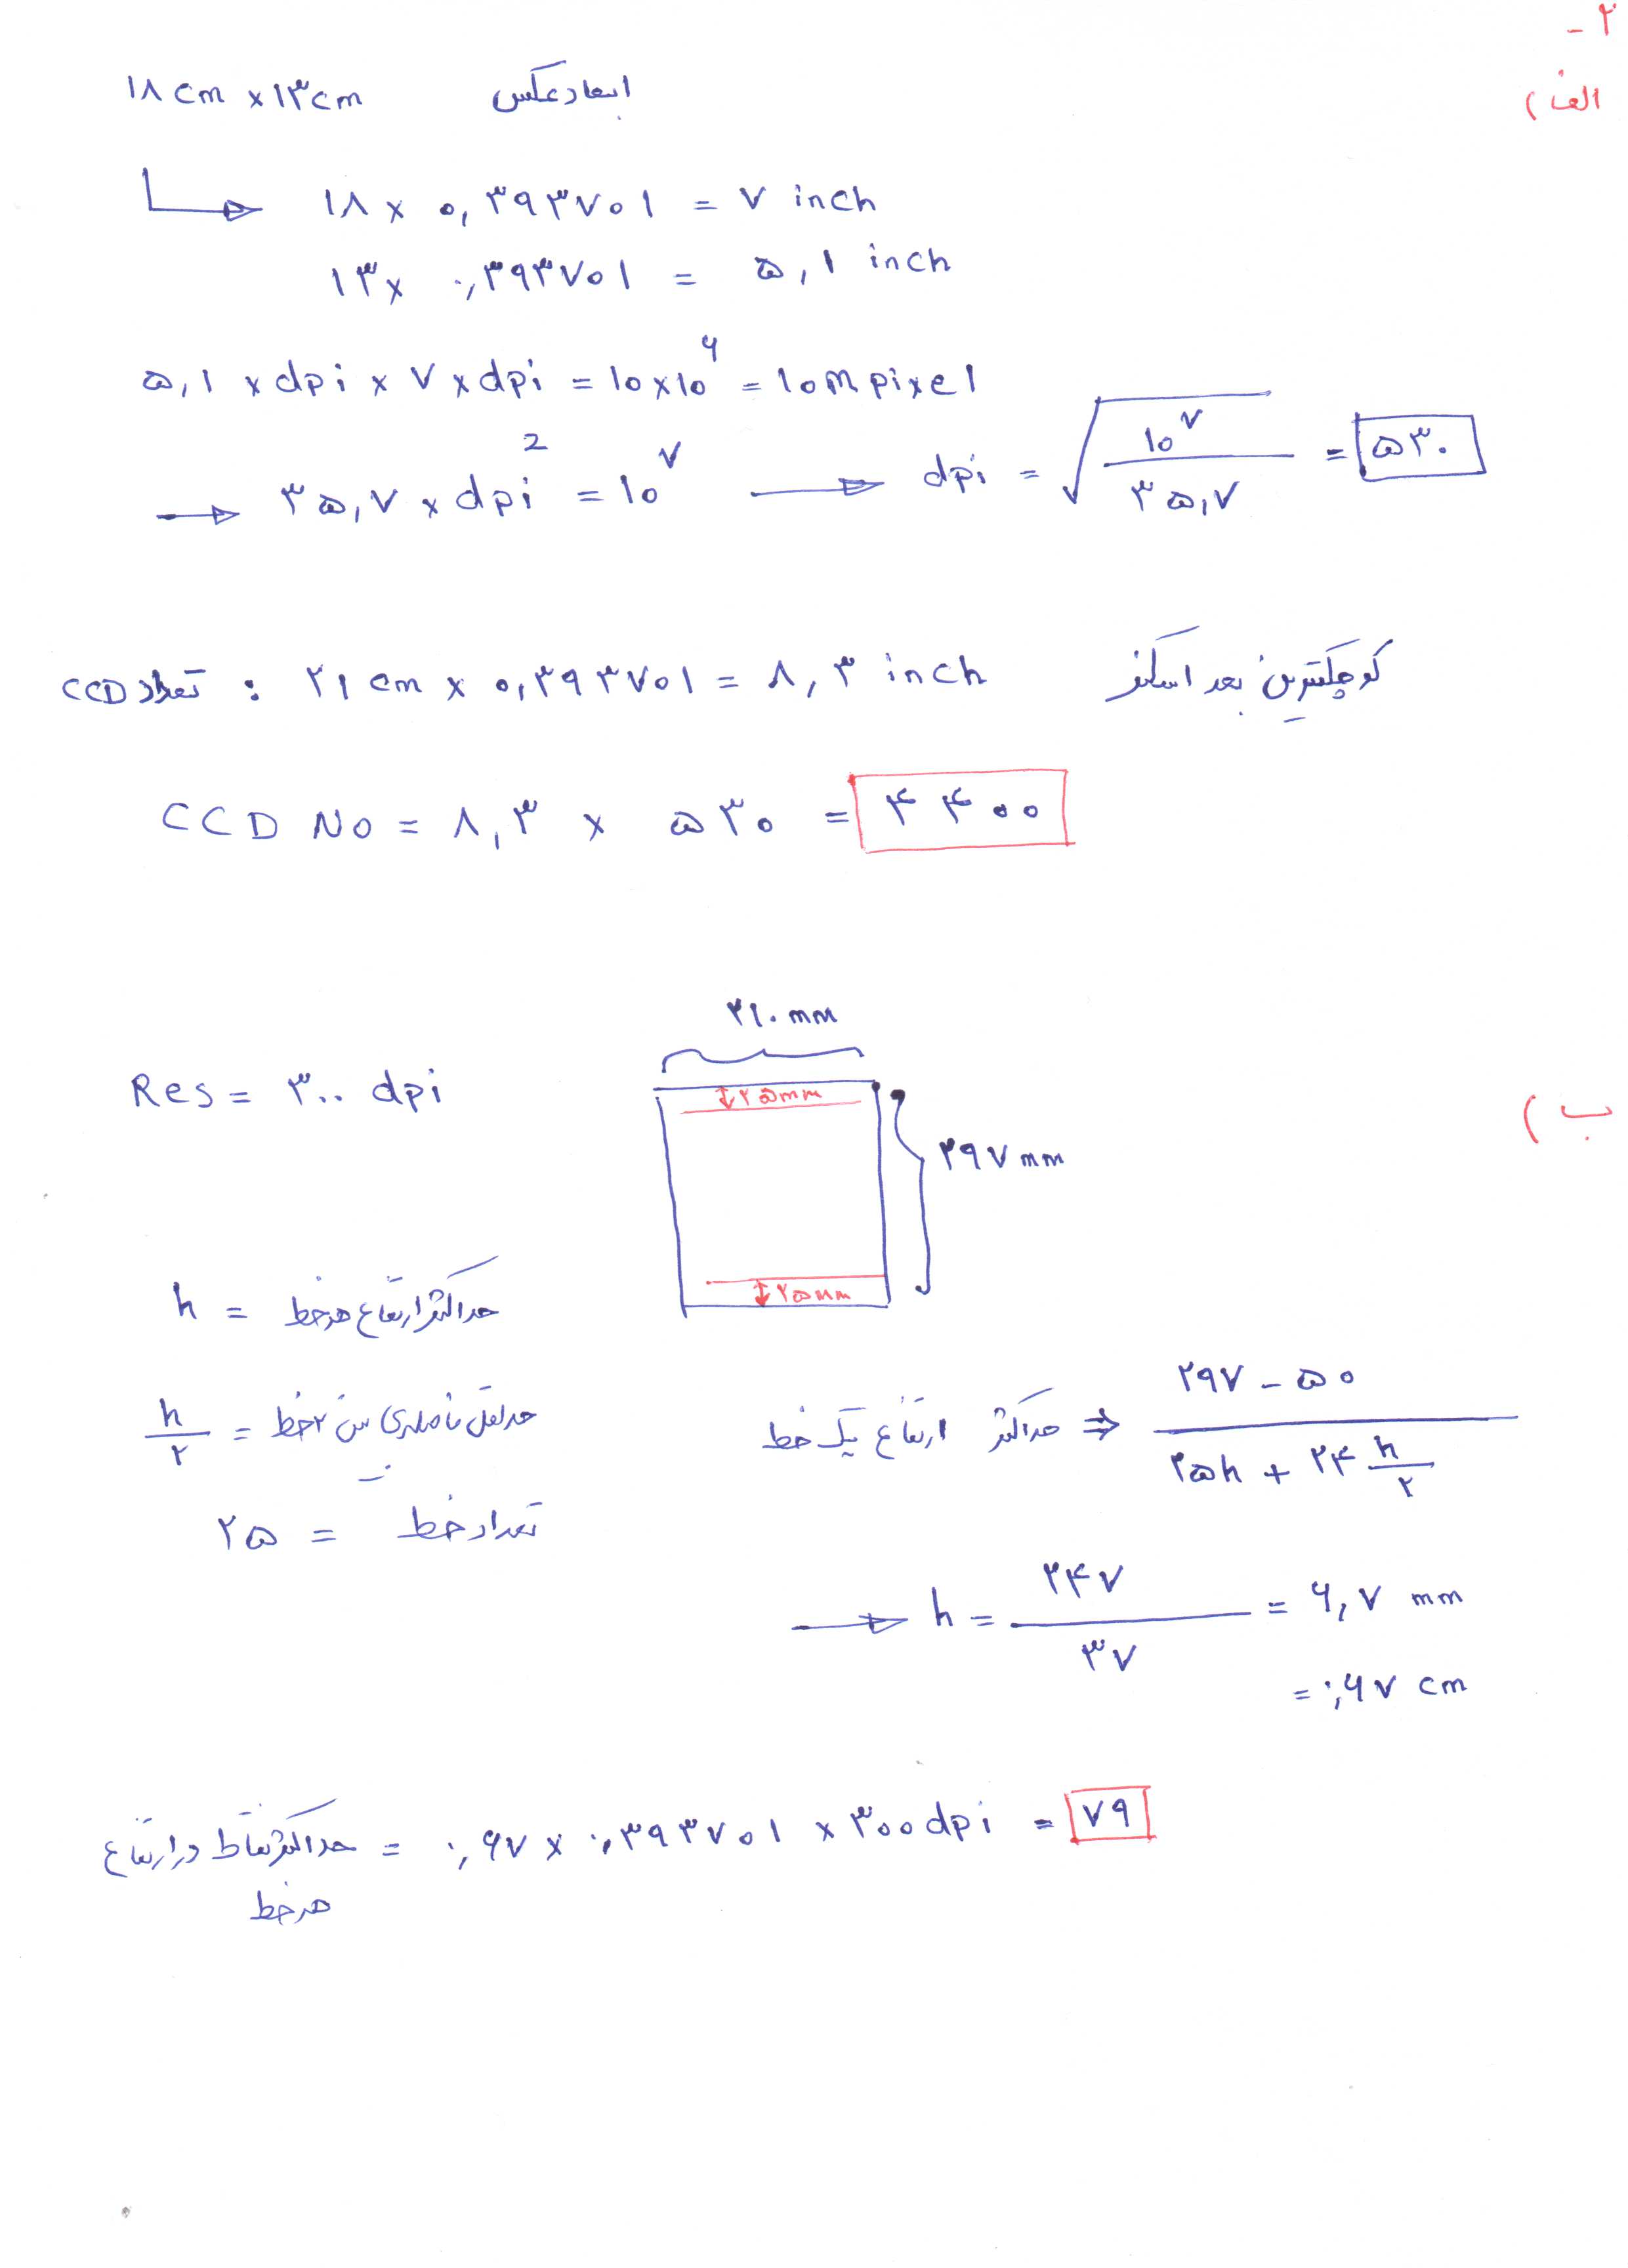 ۲ -
الف)
ابعاد عکس ۱۸ cm x ۱۳ cm
۱۸ x ۰,۳۹۳۷۰۱ = ۷ inch
۱۳ x ۰,۳۹۳۷۰۱ = ۵,۱ inch
۵,۱ x dpi x ۷ x dpi = ۱۰ x ۱۰^۶ = ۱۰ mpixel
→ ۳۵,۷ x dpi^2 = ۱۰^۷ → dpi = √(۱۰^۷ / ۳۵,۷) = ۵۳۰
تعداد CCD : ۲۱ cm x ۰,۳۹۳۷۰۱ = ۸,۳ inch کوچکترین بعد اسکنر
CCD No = ۸,۳ x ۵۳۰ = ۴۴۰۰
ب)
Res = ۳۰۰ dpi
۲۱۰ mm
۲۵mm
۲۹۷ mm
۲۵mm
h = حداکثر ارتفاع هر خط
h/۲ = حداقل فاصله‌ی بین ۲ خط
۲۵ = تعداد خط
حداکثر ارتفاع یک خط ⇒ (۲۹۷ - ۵۰) / (۲۵h + ۲۴ h/۲)
→ h = ۲۴۷ / ۳۷ = ۶,۷ mm
= ۰,۶۷ cm
حداکثر نقاط در ارتفاع هر خط = ۰,۶۷ x ۰,۳۹۳۷۰۱ x ۳۰۰ dpi = ۷۹